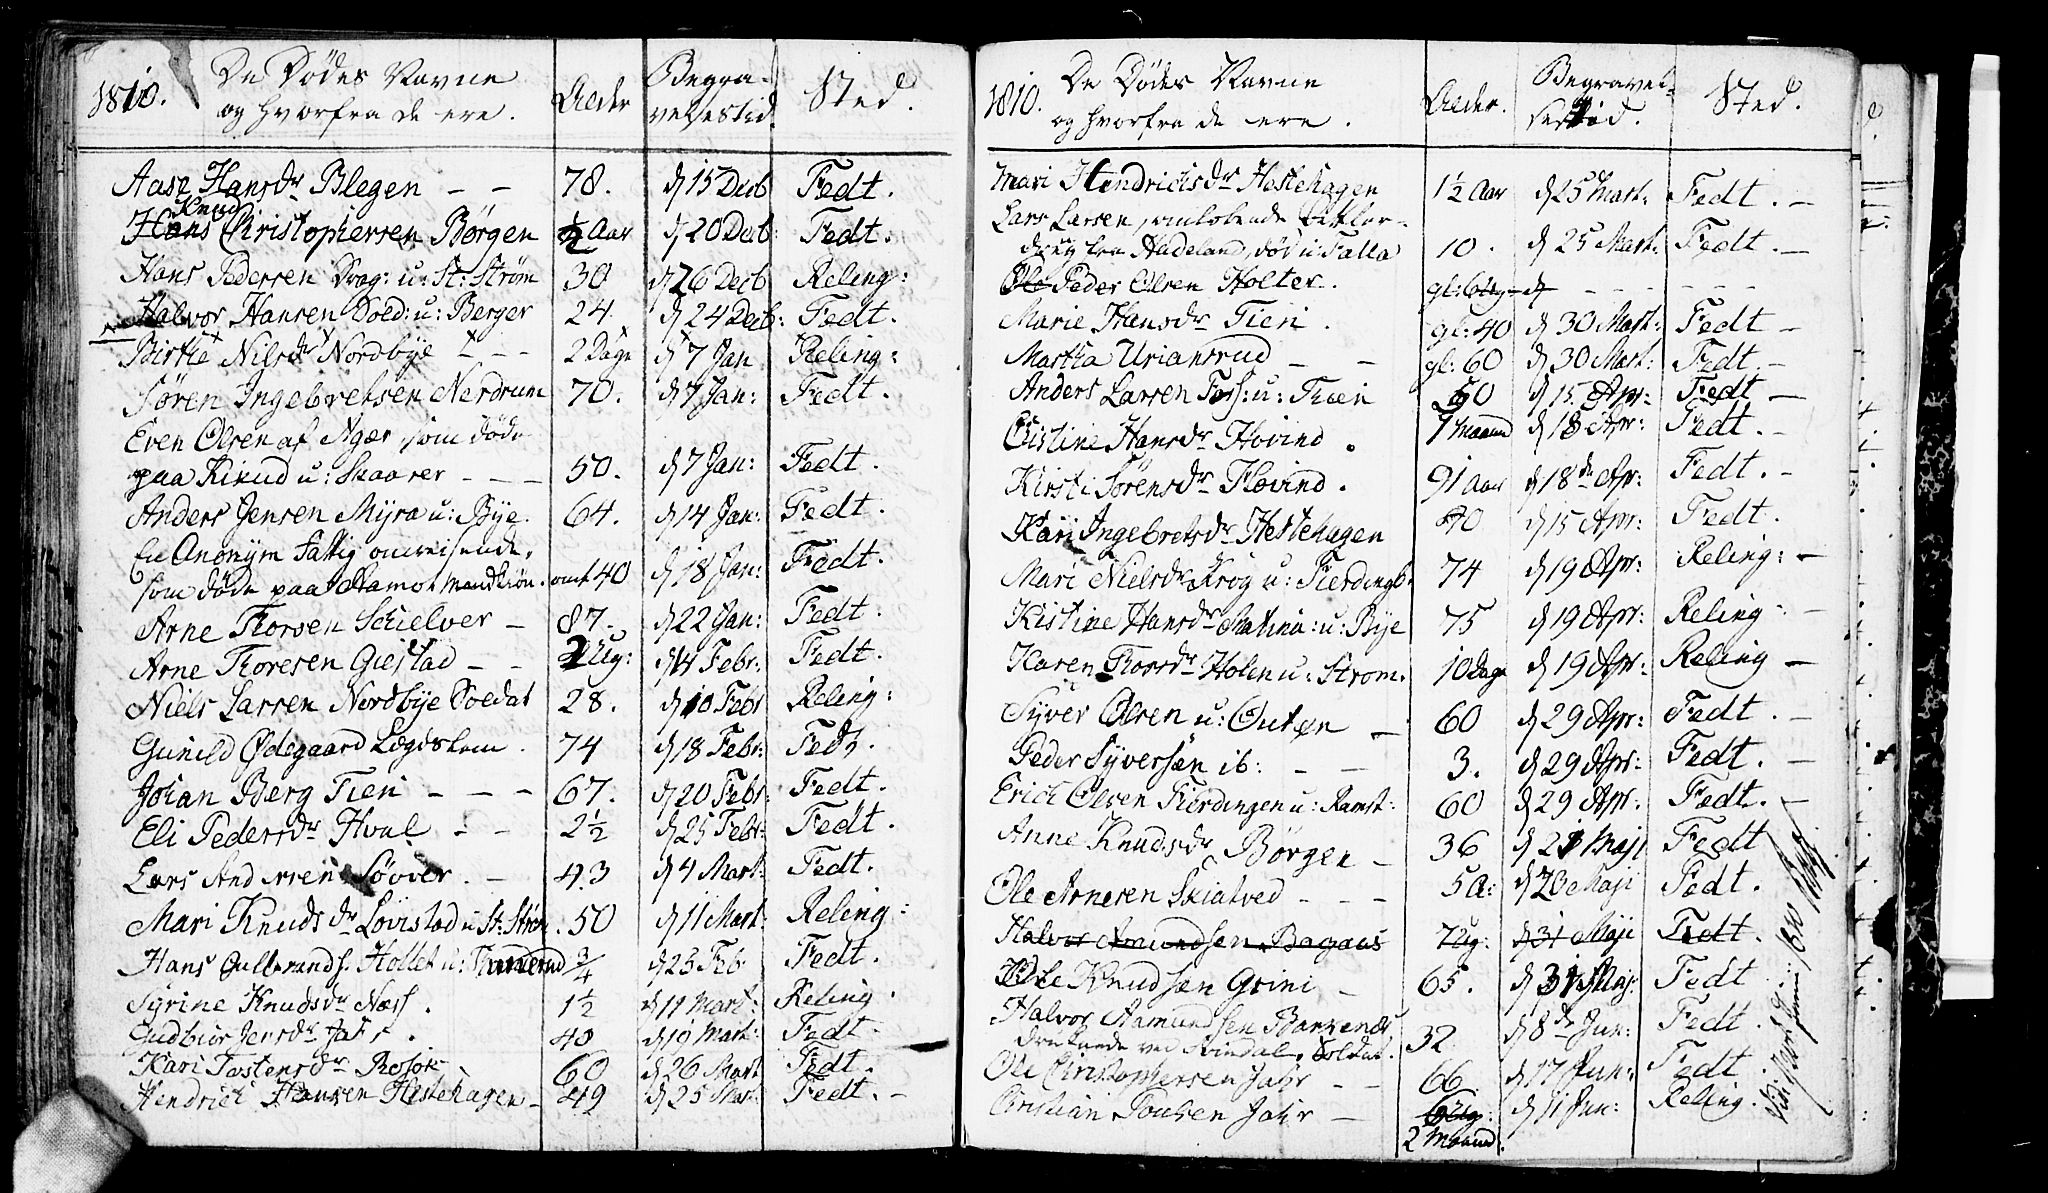 1810. De Dødes Navne
og hvorfra de ere.
Alder
Begravelsestid
Sted.
Aase Hansdr Blegen - - 78. d 15 Decb Fedt.
Knud
Hans Christophersen Børgen ½ Aar d 20 Decb: Fedt.
Hans Pedersen Drag: u: St: Strøm 30 d 26 Decb Reling:
Halvor Hansen Sold: u: Berger 24. d 24 Decb: Fedt.
Birthe Nilsdr Nordbye - - 2 Dage d 7 Jan Reling:
Søren Ingebretsen Nerdrum 70. d 7 Jan: Fedt.
Even Olsen af Ager som døde
paa Kirud u: Skaarer - - - 50. d 7 Jan: Fedt.
Anders Jensen Myra u: Bye. 64. d 14 Jan: Fedt.
En Anonym Fattig omreisende,
som døde paa Ramst. omt 40 d 18 Jan: Fedt.
Arne Thorsen Schielver - 87. d 22 Jan: Fedt.
Arne Thoresen Giestad - - 2 Ug: d 4 Febr: Fedt.
Niels Larsen Nordbye Soldat 28. d 10 Febr Reling:
Gunild Ødegaard Lægdslem. 74 d 18 Febr: Fedt.
Johan Berg Tien - - - 67. d 20 Febr: Fedt.
Eli Pedersdr Hval - - 2½ d 25 Febr: Fedt.
Lars Andersen Søvver. - 43 d 4 Mart: Fedt.
Mari Knudsdr Løvistad u St: Strøm. 50 d 11 Mart: Reling:
Hans Gulbrands. Hollet u: Thunerud ¾ d 25 Feb: Fedt.
Syrine Knudsdr Næss. 1½ d 11 Mart: Reling.
Gudbiør Jensdr Jahr. 40 d 19 Mart: Fedt.
Kari Tostensdr Rosok 60 d 26 Mart Fedt.
Hendrich Hansen Hestehagen - 49 d 25 Mar: Fedt. -
1810. De Dødes Navne
og hvorfra de ere.
Alder.
Begravelsestid.
Sted.
Mari Hendrichsdr Hestehagen 1½ Aar d 25 Mart: Fedt. -
Lars Larsen, omløbende Betler-
dreng fra Hadeland, død u: Falla 10. d 25 Mart: Fedt. -
Ole Peder Olsen Holter. gl: 6 Ug - d - - - - -
Marie Hansdr Tien. gl: 40 d 30 Mart: Fedt -
Martha Uriansrud - - gl: 60 d 30 Mart: Fedt. -
Anders Larsen Foss: u: Thien 50 d 15 Apr: Fedt -
Cristine Hansdr Hovind. 7 Maaned d 18 Apr: Fedt. -
Kirsti Sørensdr Hovind. 91 Aar d 18de Apr: Fedt. -
Kari Ingebretsdr Hestehagen 40 d 15 Apr: Fedt.
Mari Nielsdr Krog u: Fierdingb. 74 d 19 Apr: Reling: -
Kistine Hansdr u: Bye 75 d 19 Apr: Reling: -
Karen Thorsdr Holen u: Strøm. 10 Dage d 19 Apr: Reling -
Syver Olsen u: - 60 d 29 Apr: Fedt. -
Peder Syversøn ib: - - 3. d 29 Apr: Fedt. -
Erich Olsen Fierdingen u: Ramst: 60 d 29 Apr: Fedt. -
Anne Knudsdr Børgen - 36 d 21 Maji Fedt
Ole Arnesen Skiatved - - - 5 a: d 23 Maji Fedt.
Halvor Amundsen Bagaas 7 Ug: d 31 Maji Fedt.
Ole Knudsen Grini - 65. d 31 Maj: Fedt
Halvor Aamundsen
Druknede ved Svindal, Soldat. 32 d 8de Jun: Fedt.
Ole Christophersen Jahr - - 66 d 17 Jun: Fedt.
Christian Poulsen Jahr - - 6 Ug: d 11 Jun: Reling.
2 Maaned: